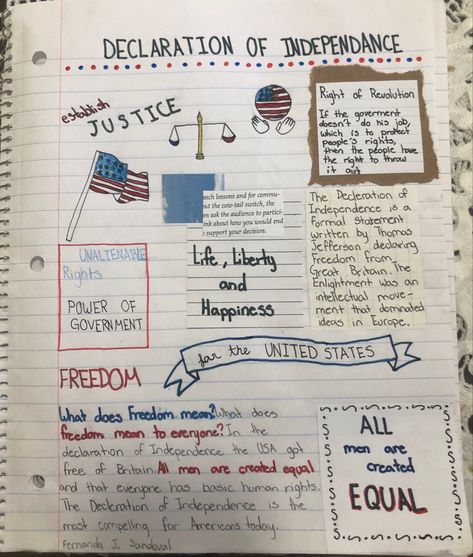 DECLARATION OF INDEPENDANCE
establish
JUSTICE
Right of Revolution
If the goverment
doesn't do his job,
which is to protect
people's rights,
then the people have
the right to throw
it out
each lessons and for commu-
out the cow-tail switch, the
en ask the audience to partici-
ink about how you would end
support your decision.
The Declaration of
Independence is a
formal statement
written by Thomas
Jefferson, declaring
Freedom from
Great Britain. The
Enlightment was an
intellectual move-
ment that dominated
ideas in Europe.
UNALIENABLE
Rights
POWER OF
GOVERNMENT
Life, Liberty
and
Happiness
for the UNITED STATES
FREEDOM
What does Freedom mean? What does
freedom mean to everyone? In the
declaration of Independence the USA got
free of Britain. All men are created equal
and that everyone has basic human rights.
The Declaration of Independence is the
most compelling for Americans today.
Fernanda J. Sandoval
ALL
men are
created
EQUAL